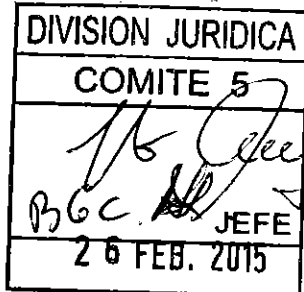 DIVISION JURIDICA
COMITE 5
BGC.
JEFE
26 FEB. 2015